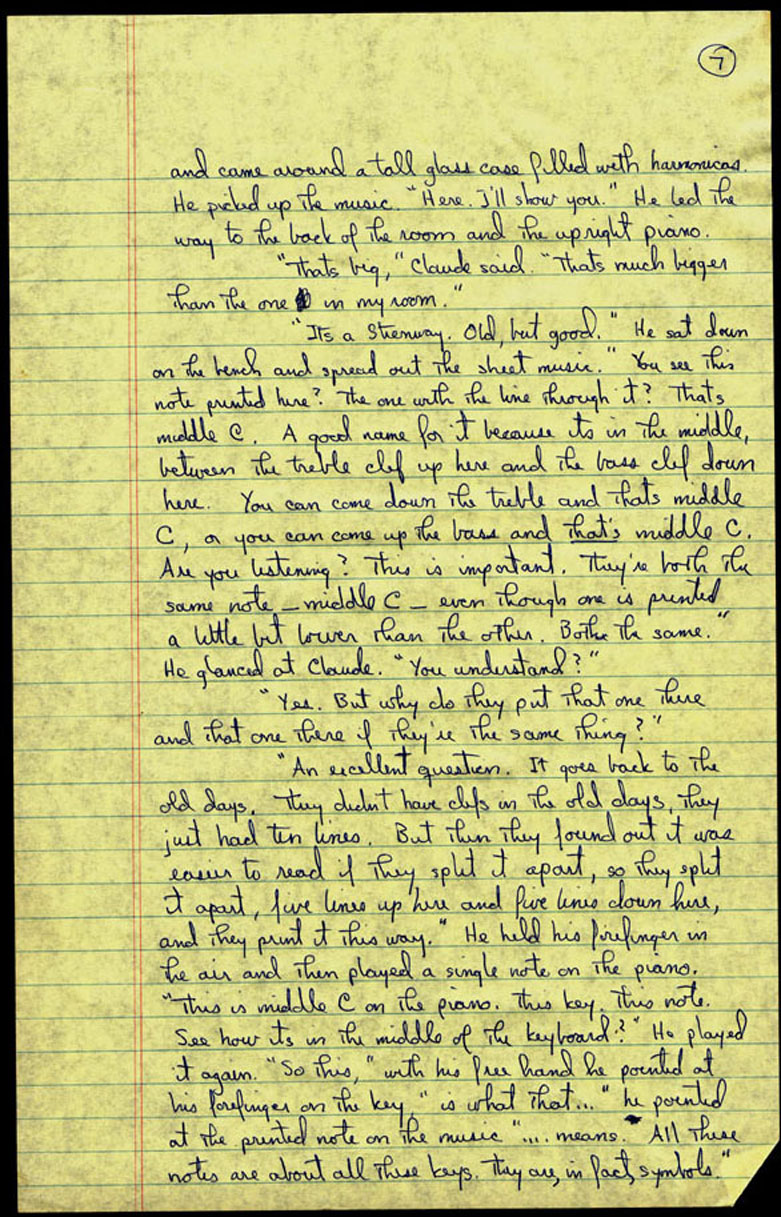 7
and came around a tall glass case filled with harmonicas.
He picked up the music. "Here. I'll show you." He led the
way to the back of the room and the upright piano.
"Thats big," Claude said. "Thats much bigger
than the one in my room."
"Its a Steinway. Old, but good." He sat down
on the bench and spread out the sheet music. "You see this
note printed here? The one with the line through it? Thats
middle C. A good name for it because its in the middle,
between the treble clef up here and the bass clef down
here. You can come down the treble and thats middle
C, or you can come up the bass and that's middle C.
Are you listening? This is important. They're both the
same note – middle C – even though one is printed
a little bit lower than the other. Bothe the same."
He glanced at Claude. "You understand?"
"Yes. But why do they put that one there
and that one there if they're the same thing?"
"An excellent question. It goes back to the
old days. They didnt have clefs in the old days, they
just had ten lines. But then they found out it was
easier to read if they split it apart, so they split
it apart, five lines up here and five lines down here,
and they print it this way." He held his forefinger in
the air and then played a single note on the piano.
"This is middle C on the piano. This key. This note.
See how its in the middle of the keyboard?" He played
it again. "So this," with his free hand he pointed at
his forefinger on the key, "is what that..." he pointed
at the printed note on the music "... means. All these
notes are about all these keys. They are, in fact, symbols."